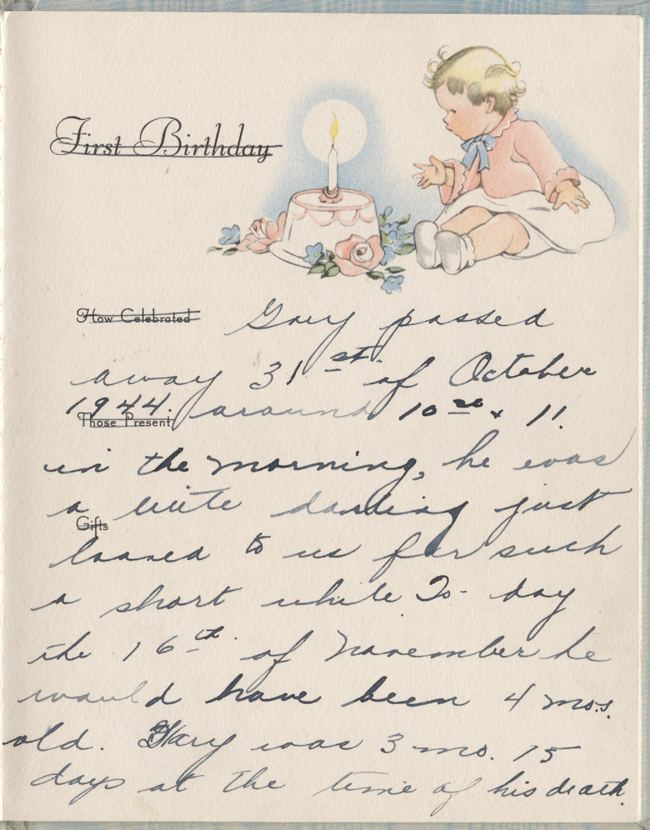 First Birthday
How Celebrated
Gary passed
away 31st of October
1944. around 10 00 & 11
Those Present
in the morning, he was
a little darling just
Gifts
loaned to us for such
a short while To-day
the 16th of November he
would have been 4 mos.
old. Gary was 3 mo. 15
days at the time of his death.